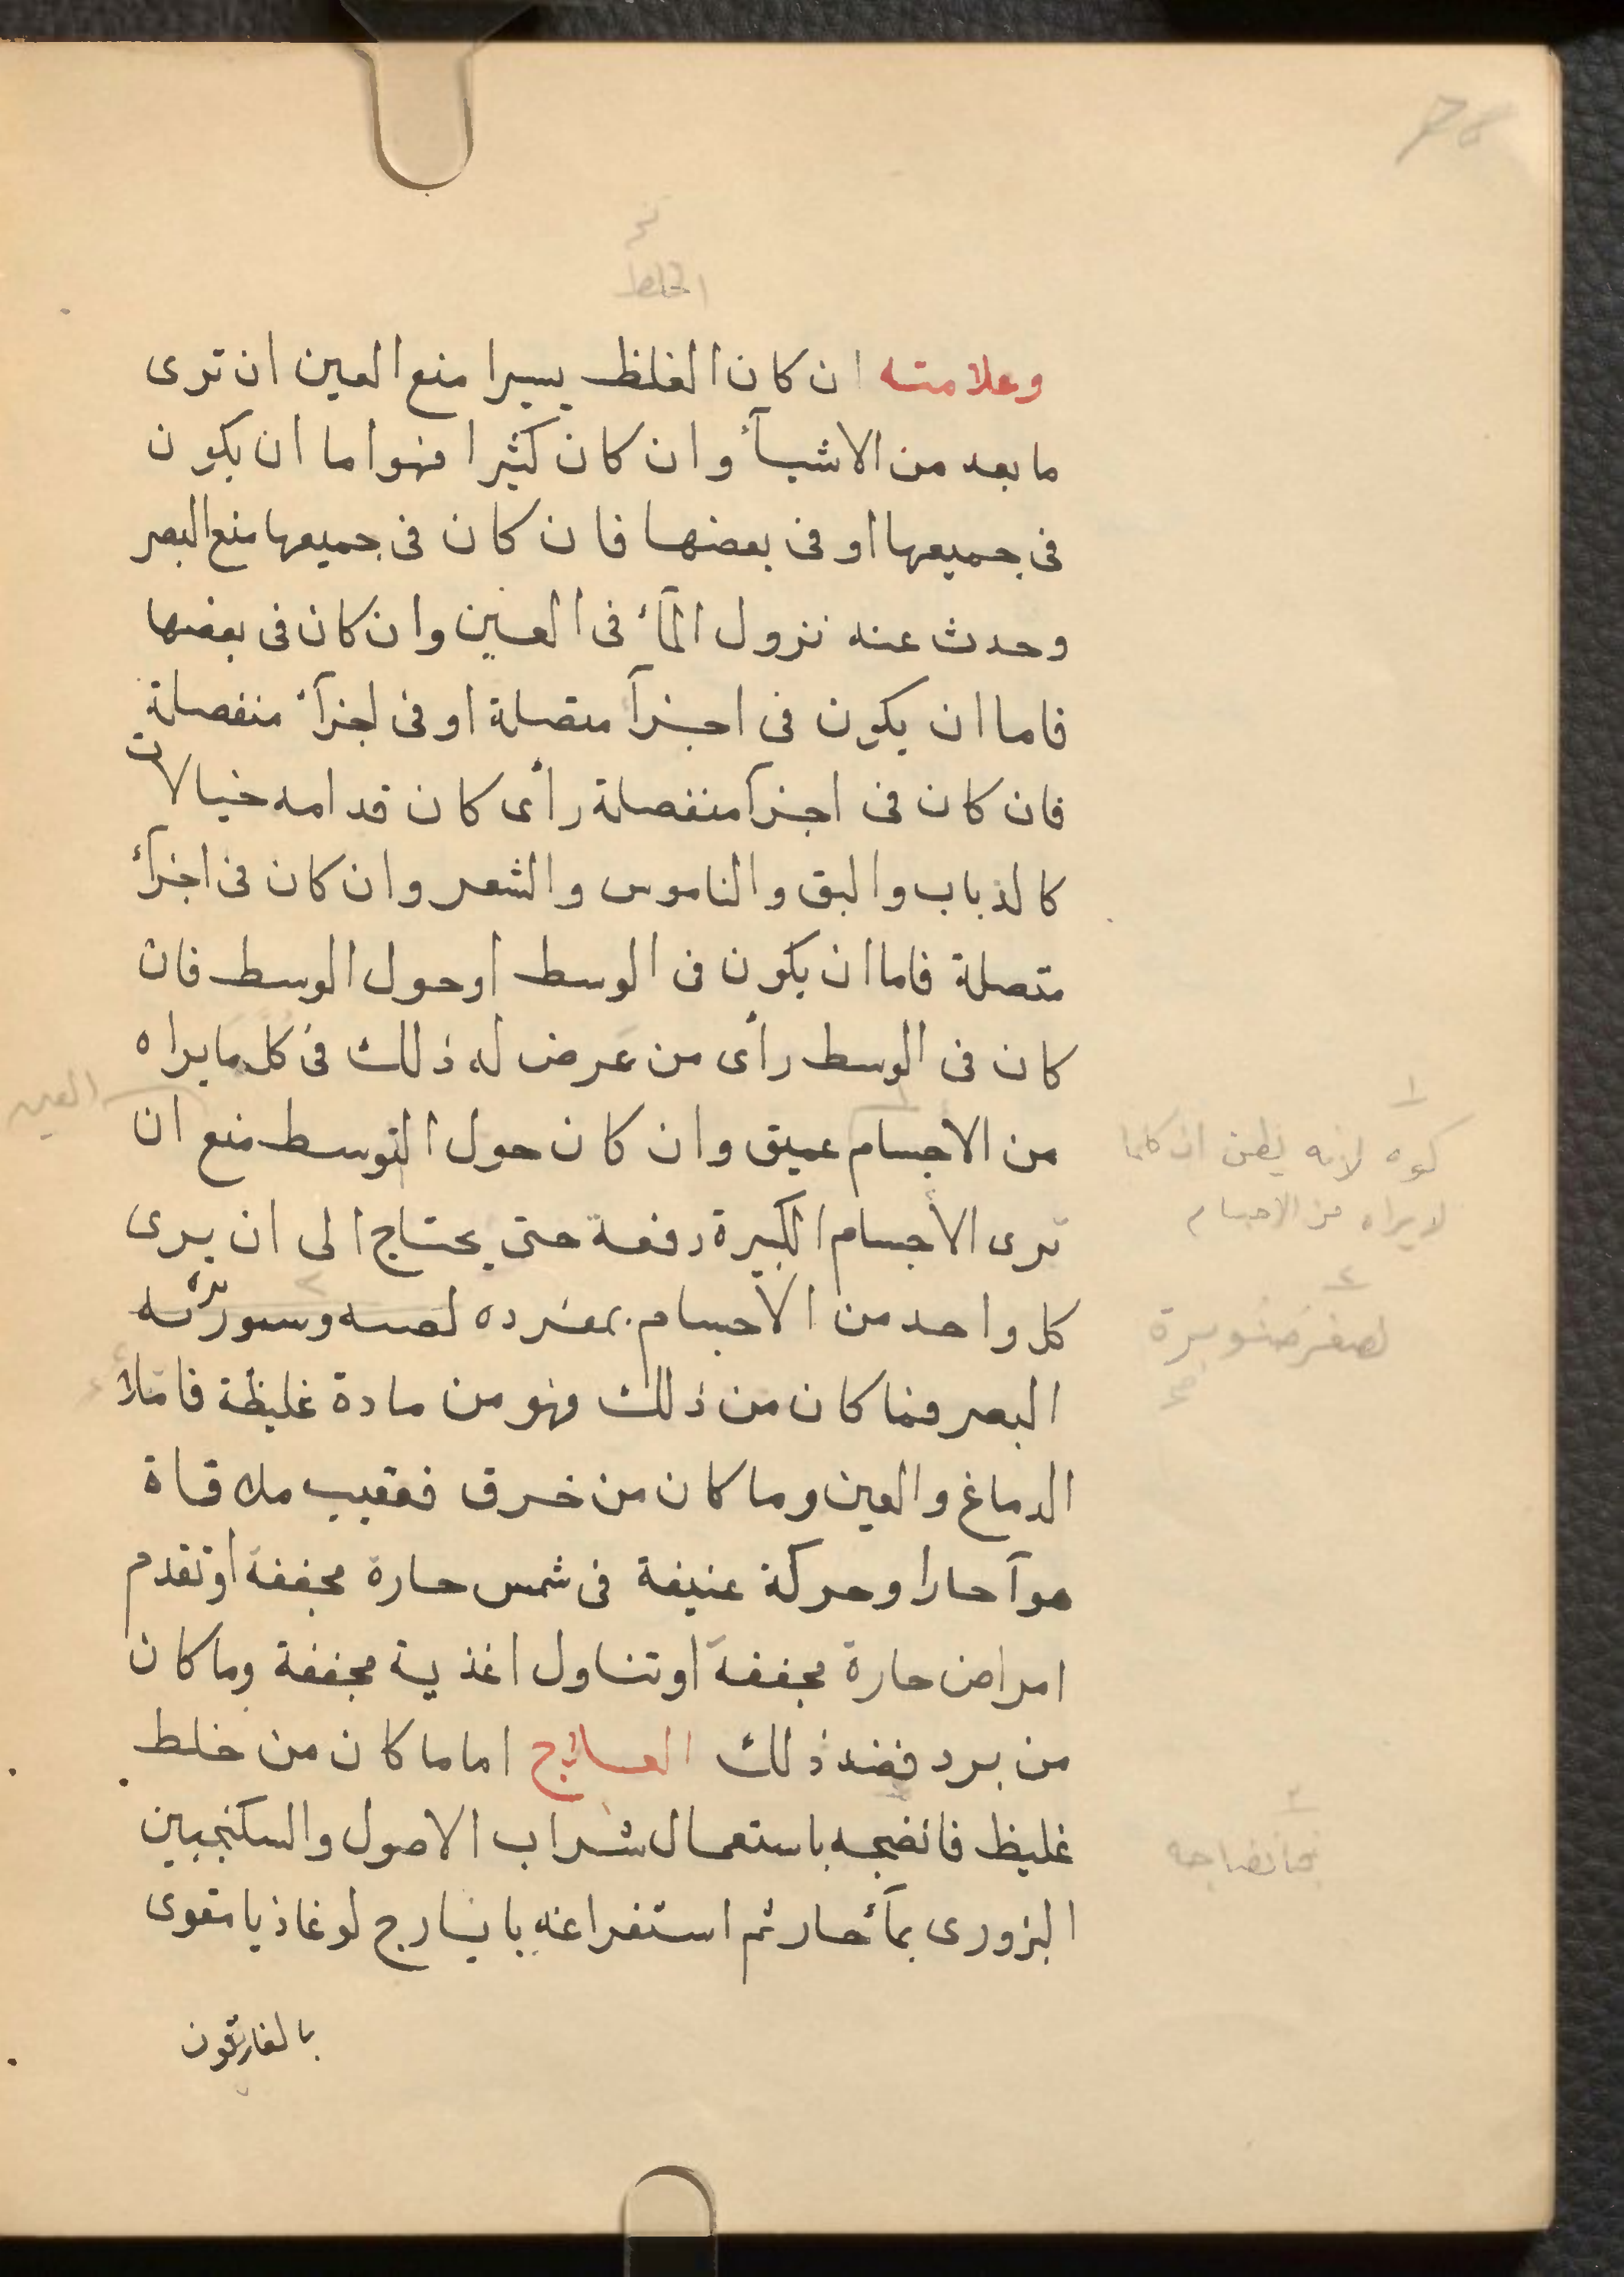 الخلط
وعلامته ان كان الغلظ يسيرا منع العين ان ترى
ما بعد من الاشيآء وان كان كثيرا فهو اما ان يكون
فى جميعها او فى بعضها فان كان فى جميعها منع البصر
وحدث عنه نزول المآء فى العين وان كان فى بعضها
فاما ان يكون فى اجزآ متصلة او فى اجزآء منفصلة
فان كان فى اجزآ منفصلة رأى كان قدامه خيالات
كالذباب والبق والناموس والشعر وان كان فى اجزآء
متصلة فاما ان يكون فى الوسط او حول الوسط فان
كان فى الوسط رأى من عرض له ذلك فى كل ما يراه
العين
من الاجسام عميق وان كان حول التوسط منع ان
كوه لانه يظن ان كلما
لا يراه من الاجسام
ترى الأجسام الكبيرة دفعة حتى يحتاج الى ان يرى
كل واحد من الأجسام بمفرده
لصغر صنوبرة
البصر فما كان من ذلك فهو من مادة غليظة فاملأ
الدماغ والعين وما كان من خرق فعقيب ملاقاة
هوآ حارا وحركة عنيفة فى شمس حارة مجففة او تقدم
امراض حارة مجففة او تناول اغذية مجففة وما كان
من برد فضد ذلك العلاج اما ما كان من خلط
غليظ فانضجه باستعمال شراب الاصول والسكنجبين
البزورى بمآء حار ثم استفراغه بايارج لوغاذيا مقوى
بالغاريقون